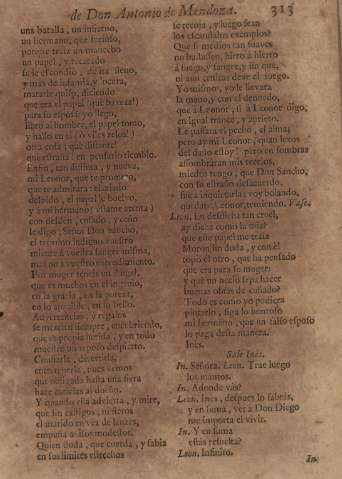 de Don Antonio de Mendoza. 313
una batalla, un infierno,
un hermano, que furioso,
porque traía un mancebo
un papel, y recatado
se le escondió, de ira lleno,
y mas de infamia, y locura,
matarle quiso, diciendo
que era el papel (què baxeza!)
para su esposa: yo llego,
libro al hombre, el papel tomo,
y hallo en él (ò viles zelos!)
otra cosa; què distante!
què estraña! en pensarlo tiemblo.
En fin, tan distinta, y nueva,
mi Leonor, que te prometo,
que te admirára: el criado
despido, el papel le buelvo,
y à mi hermano
con desdén, cuñado, y ceño
le digo: Señor Don Sancho,
el termino indigno vuestro
miente à vuestra sangre misma,
mas no à vuestro entendimiento.
Por muger tenéis un Angel,
que es muchos en el ingenio,
en la gracia, en la pureza,
en lo amable, en lo bello.
Advertencias, y regalos
se mezclen siempre, encubriendo,
que es propia herida, y en todo
muestre un respeto despierto.
Cuidarla, divertirla,
entretenerla, pues vemos
que obligada hasta una fiera
hace caricias al dueño.
Y quando ella advierta, y mire,
que sin castigos, ni fieros
el marido en vez de lanzas,
empuña alhos modestos.
Quien duda, que cuerda, y sabia
en sus limites estrechos
se recoja, y luego sean
los escandalos exemplos?
Que si medios tan suaves
no bastassen, hierro à hierro
à fuego, y sangre, y sin que
ni aun cenizas dexe el fuego.
Yo mismo, yo le llevara
la mano, y con el denuedo,
que à Leonor, si à Leonor digo,
en igual trance, y aprieto.
Le passára el pecho, el alma;
pero ay mi Leonor, quan lexos
del daño estoy! pero en sombras
assombraran mis rezelos,
miedos tengo, que Don Sancho,
con su estraño desacuerdo,
busca inquietarla; voy bolando,
quedate, Leonor, temiendo. Vase.
Leon. En desdicha tan cruel,
ay dicha como la mia?
que este papel me traía
Moron sin duda, y con él
topó el otro, que ha pensado
que era para su muger;
y què un necio sepa hacer
buenas obras de cuñado?
Todo es como yo pudiera
pintarlo, siga lo hermoso
mi hermano, que un falso esposo
lo paga desta manera.
Ines.
Sale Inès.
In. Señora. Leon. Trae luego
los mantos.
In. Adonde vàs?
Leon. Ines, despues lo sabràs,
y en suma, ver à Don Diego
me importa el vivir.
In. Y en suma
estás resuelta?
Leon. Infinito.
In.